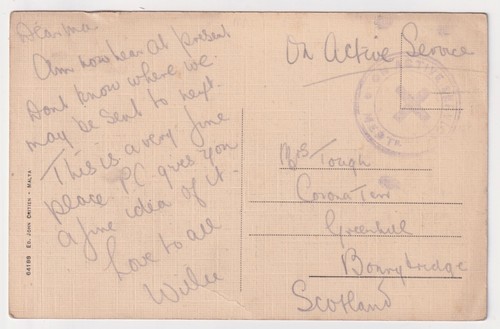 Dear ma
Am now hear at present
Dont know where we
may be sent to next.
This is a very fine
place P.C. gives you
a fine idea of it.
Love to all
Willie
On Active Service
ON ACTIVE
Mrs Tough
Corona Terr
Greenhill
Bonnybridge
Scotland
64198 ED. JOHN CRITIEN - MALTA